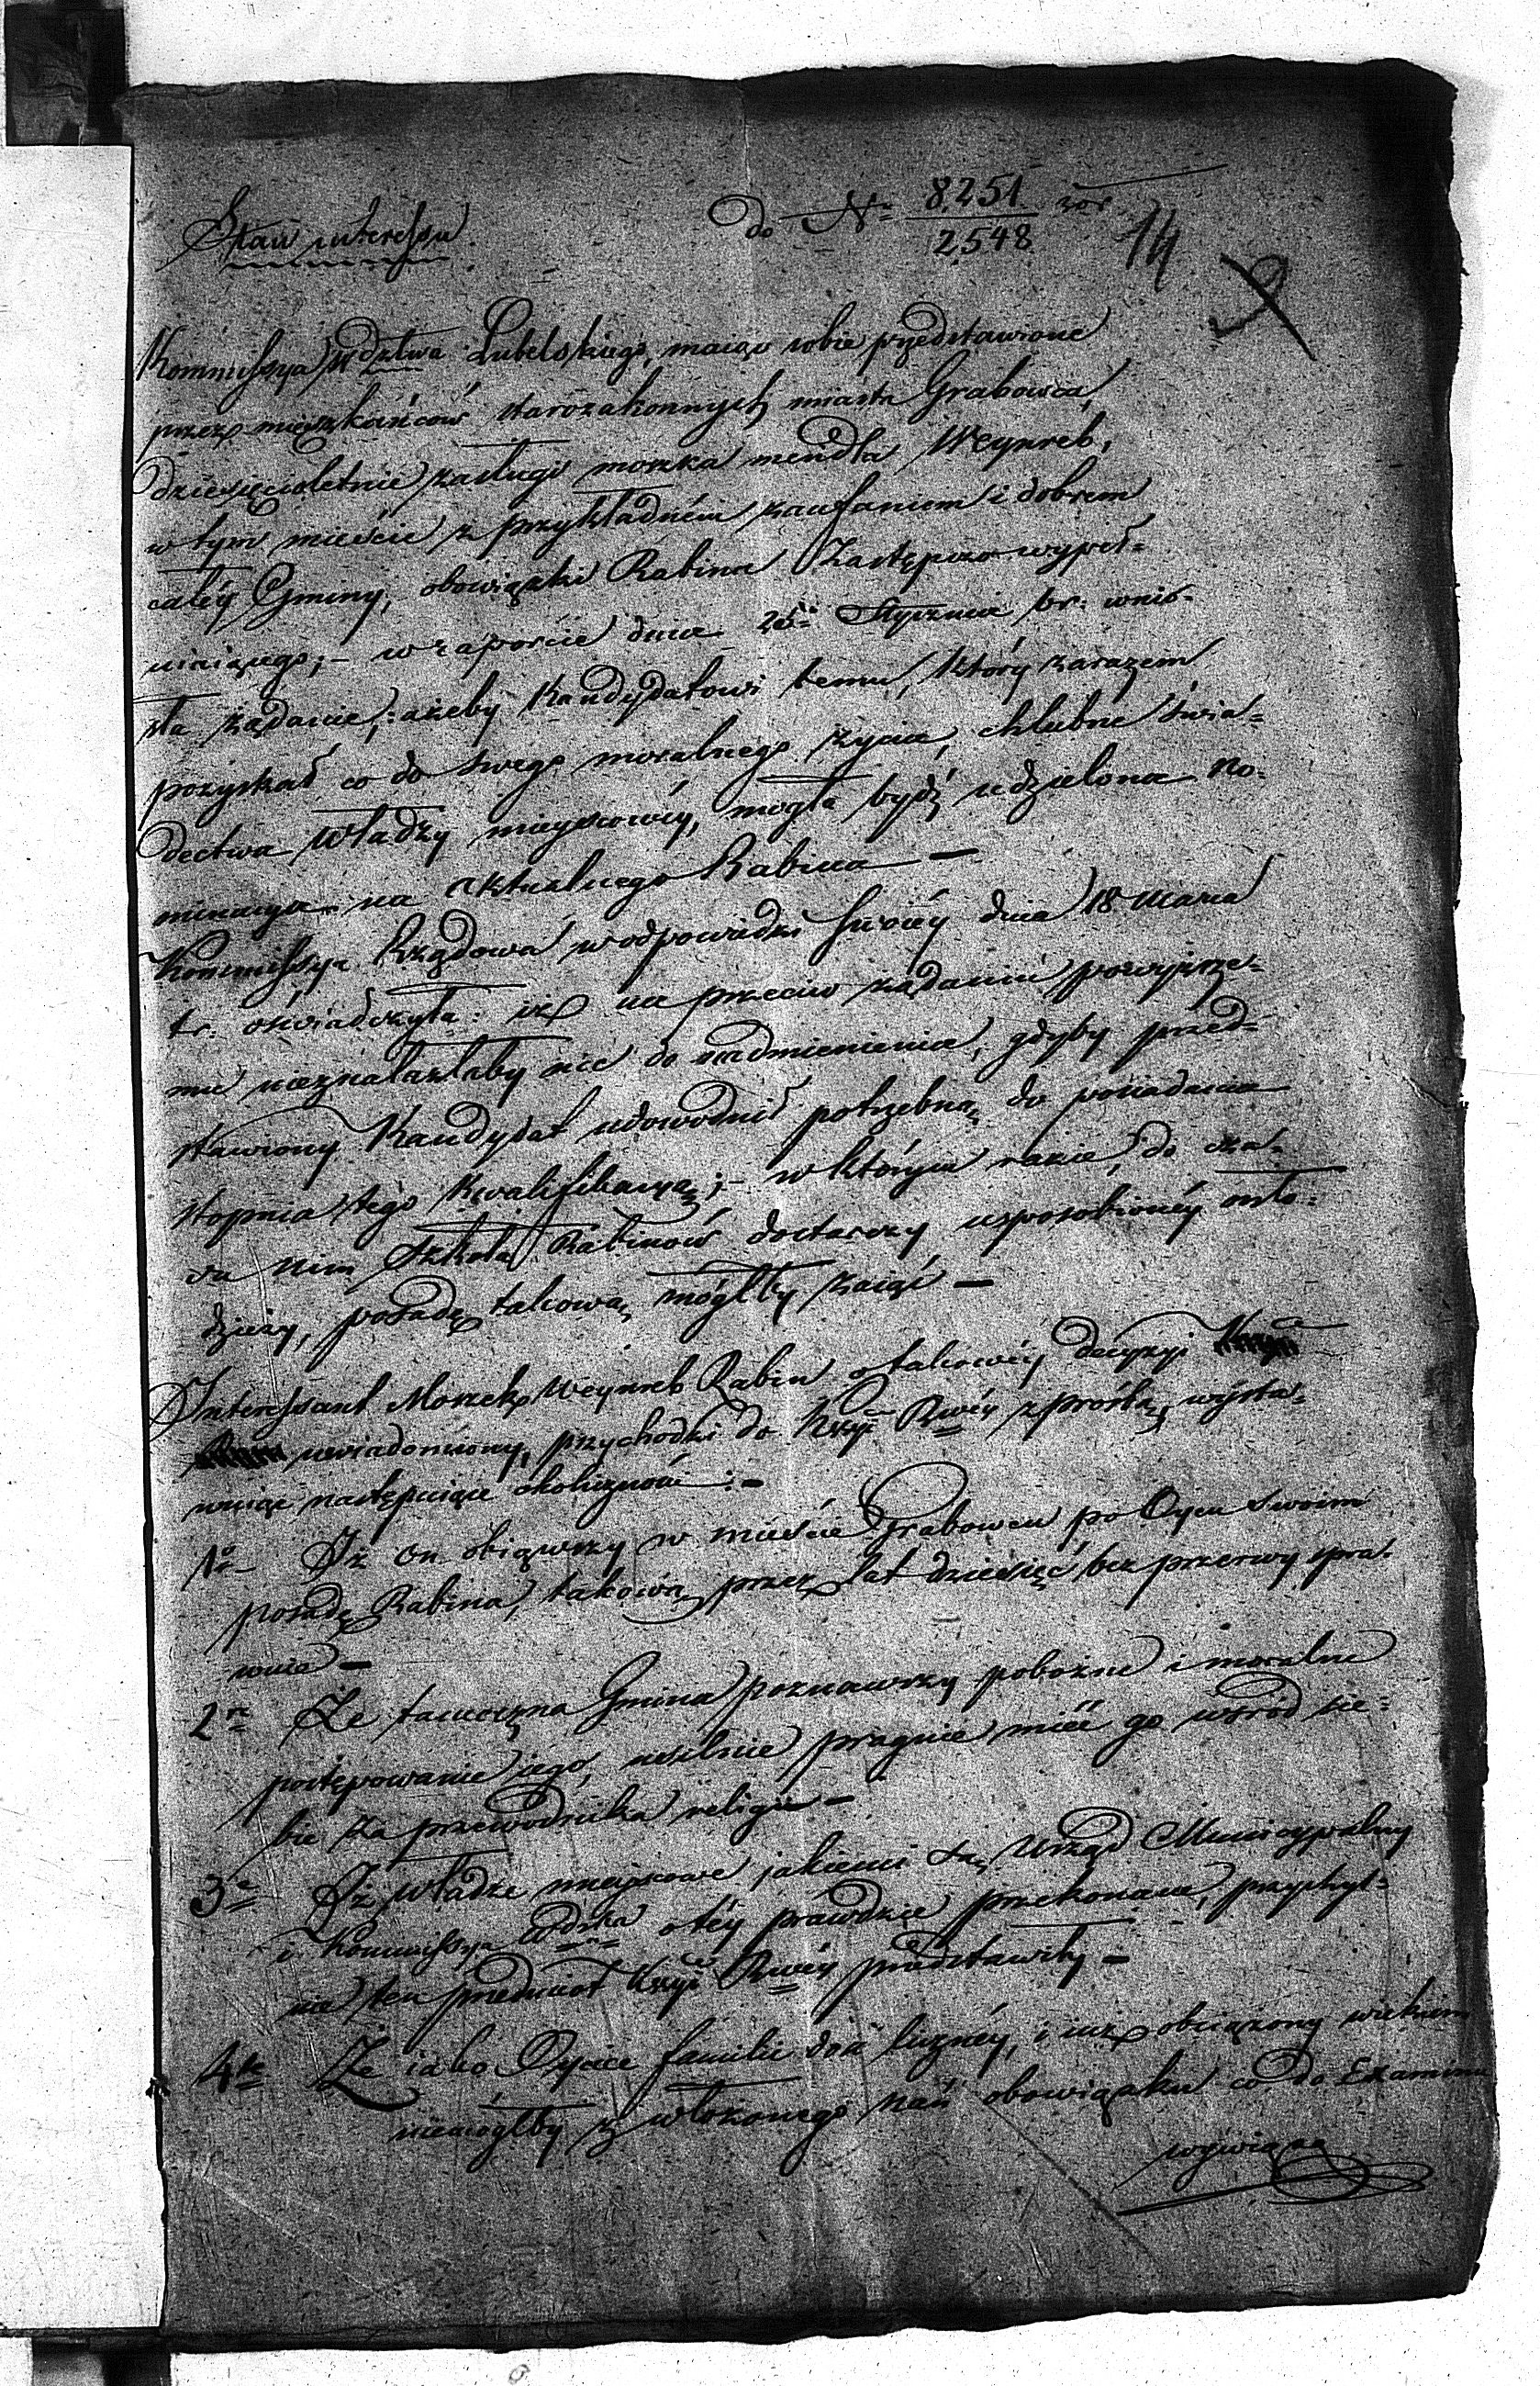 Stan interessu
do Nr 8,251 / 2,548
14
Kommissya Wdztwa Lubelskiego, maiąc sobie przedstawione
przez mieszkańców starozakonnych miasta Grabowca,
dziesięcioletnie zasługi moszka mendla Weynreb,
w tym mieście z przykładném zaufaniem i dobrem
całéy Gminy, obowiązki Rabina Zastępczo wypeł=
niaiącego; – w raporcie dnia Stycznia br. wnio=
sła żądanie, ażeby Kandydatowi temu, który zarazem
pozyskał co do swego moralnego życia, chlubne świa=
dectwa Władzy mieyscowéy, mogła bydź udzielona No=
minacya na aktualnego Rabina –
Kommissya Rządowa w odpowiedzi swoiéy dnia 18 Marca
t.r. oświadczyła: iż na przeciw żądaniu powyższe=
mu nieznalazłaby nic do nadmienienia, gdyby przed=
stawiony Kandydat udowodnił potrzebną do posiadania
stopnia tego kwalifikacyą; – w którym razie, do cza=
su nim Szkoła Rabinów dostarczy usposobionéy mło=
dzieży, posadę takową mógłby zaiąć –
Interessant Moszek Weynreb Rabin o takowéy decyzyi
uwiadomiony, przychodzi do Kssyi Rwéy z prośbą, wysta=
wuiąc następuiące okoliczności: –
1o – Iż on obiąwszy w mieście Grabowcu po Oycu swoim
posadę Rabina, takową przez lat dziesięć bez przerwy spra=
wuie –
2re Że tameczna Gmina poznawszy pobożne i moralne
postępowanie iego, usilnie pragnie mieć go wśród sie=
bie za przewodnika religii –
3e Iż Władze mieyscowe jakiemi są, Urząd Municypalny
i Kommissya Wdzka o téy prawdzie przekonane, przychyl=
nie ten przedmiot Kssyi Rwéy przedstawiły –
4te Że iako Oyciec familii dość licznéy, i iuż obciążony wiekiem
niemógłby z włożonego nań obowiązku co do Examinu
wywiąza